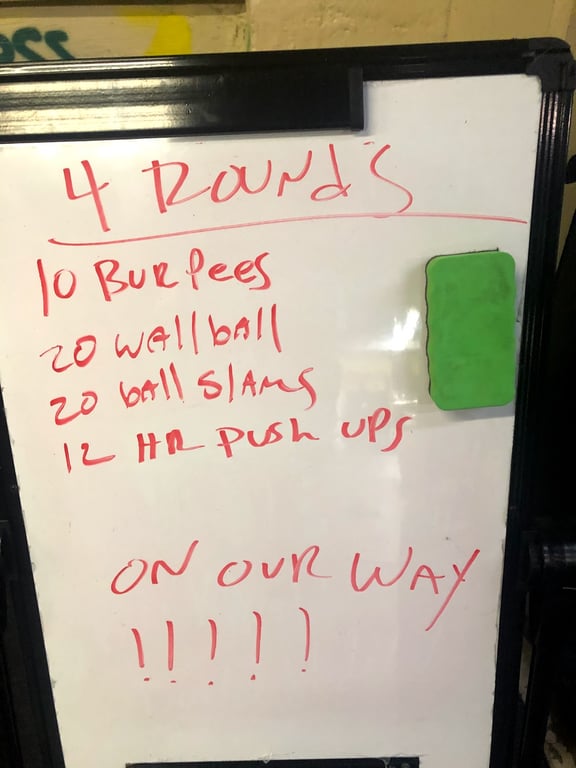 4 ROUNdS
10 BURPees
20 wallball
20 ball slams
12 HR push ups
ON OUR WAY
!!!!!